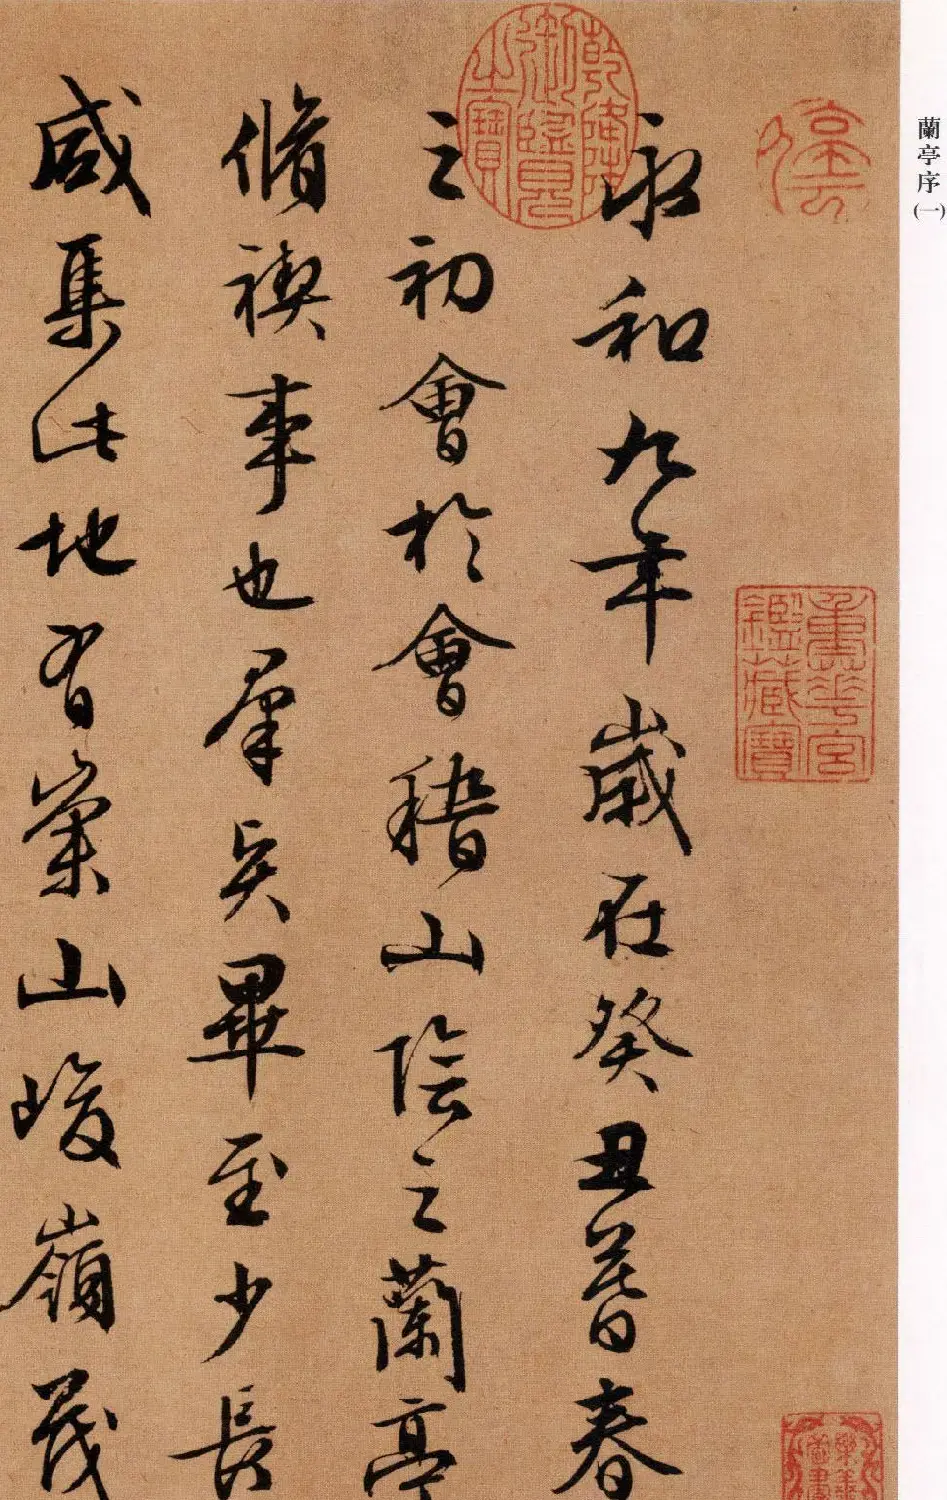 蘭亭序(一)
停雲
重華宮
鑑藏寶
樂善
圖書
乾隆
御覽
之寶
永和九年歲在癸丑暮春
之初會於會稽山陰之蘭亭
脩禊事也羣賢畢至少長
咸集此地有崇山峻嶺茂